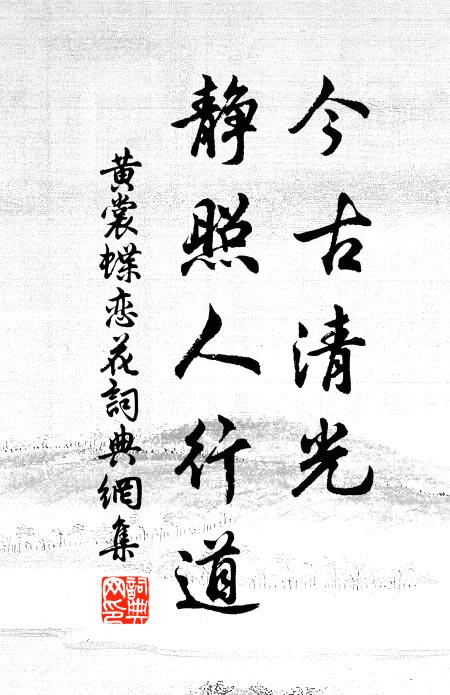 今古清光
静照人行道
黄裳蝶恋花詞典網集
詞典网印